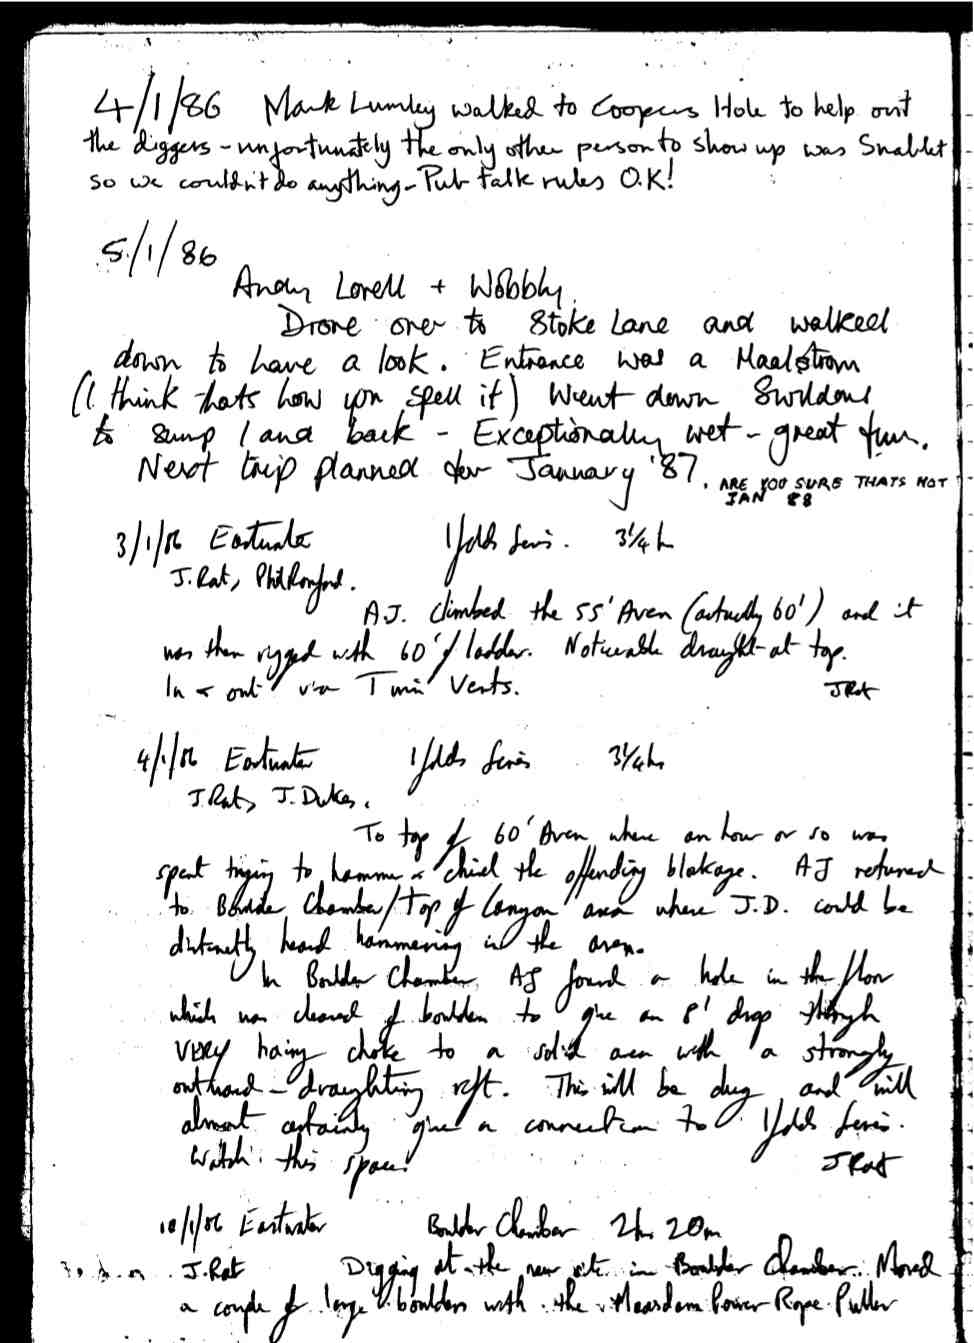 4/1/86 Mark Lumley walked to Coopers Hole to help out
the diggers - unfortunately the only other person to show up was Snablet
so we couldn't do anything - Pub talk rules O.K!
5/1/86
Andy Lovell + Wobbly
Drove over to Stoke Lane and walked
down to have a look. Entrance was a Maelstrom
(I think thats how you spell it) Went down Swildons
to Sump 1 and back - Exceptionally wet - great fun.
Next trip planned for January '87. ARE YOU SURE THATS NOT
JAN 88
3/1/86 Eastwater Ifolds Series. 3¼ h
J. Rat, Phil Romford.
AJ. climbed the 55' Aven (actually 60') and it
was then rigged with 60' of ladder. Noticeable draught at top.
In & out via Twin Verts. J Rat
4/1/86 Eastwater Ifolds Series 3¼ hr
J. Rat, J. Dukes.
To top of 60' Aven where an hour or so was
spent trying to hammer & chisel the offending blokage. AJ returned
to Boulder Chamber/Top of Canyon area where J.D. could be
distinctly heard hammering in the aven.
In Boulder Chamber, AJ found a hole in the floor
which was cleared of boulders to give an 8' drop through
VERY hairy choke to a solid area with a strongly
outward-draughting rift. This will be dug and will
almost certainly give a connection to Ifolds Series.
Watch this space! J Rat
10/1/86 Eastwater Boulder Chamber 2hr 20m
J. Rat Digging at the new site in Boulder Chamber. Moved
a couple of large boulders with the Maasdam Power Rope Puller